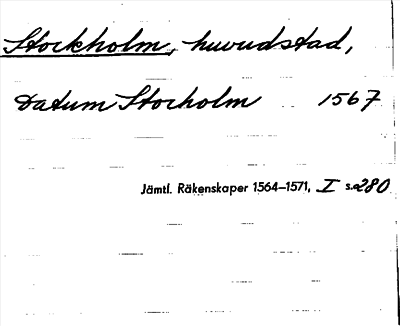 Stockholm, huvudstad,
Datum Storholm 1567
Jämtl. Räkenskaper 1564–1571, I s. 280